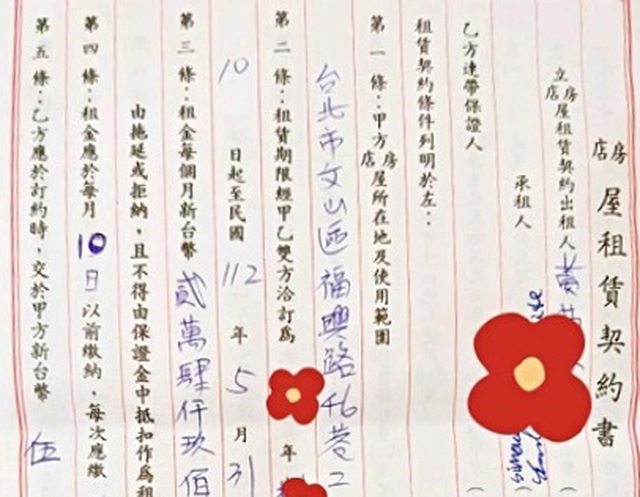 房店屋租賃契約書
立房店屋租賃契約出租人 黃
承租人
乙方連帶保證人
租賃契約條件列明於左：
第一條：甲方房店屋所在地及使用範圍
台北市文山區福興路46巷2
第二條：租賃期限經甲乙雙方洽訂為 年
10 日起至民國 112 年 5 月 31
第三條：租金每個月新台幣 貳萬肆仟玖佰
由拖延或拒納，且不得由保證金中抵扣作為租
第四條：租金應於每月 10日 以前繳納，每次應繳
第五條：乙方應於訂約時，交於甲方新台幣 伍